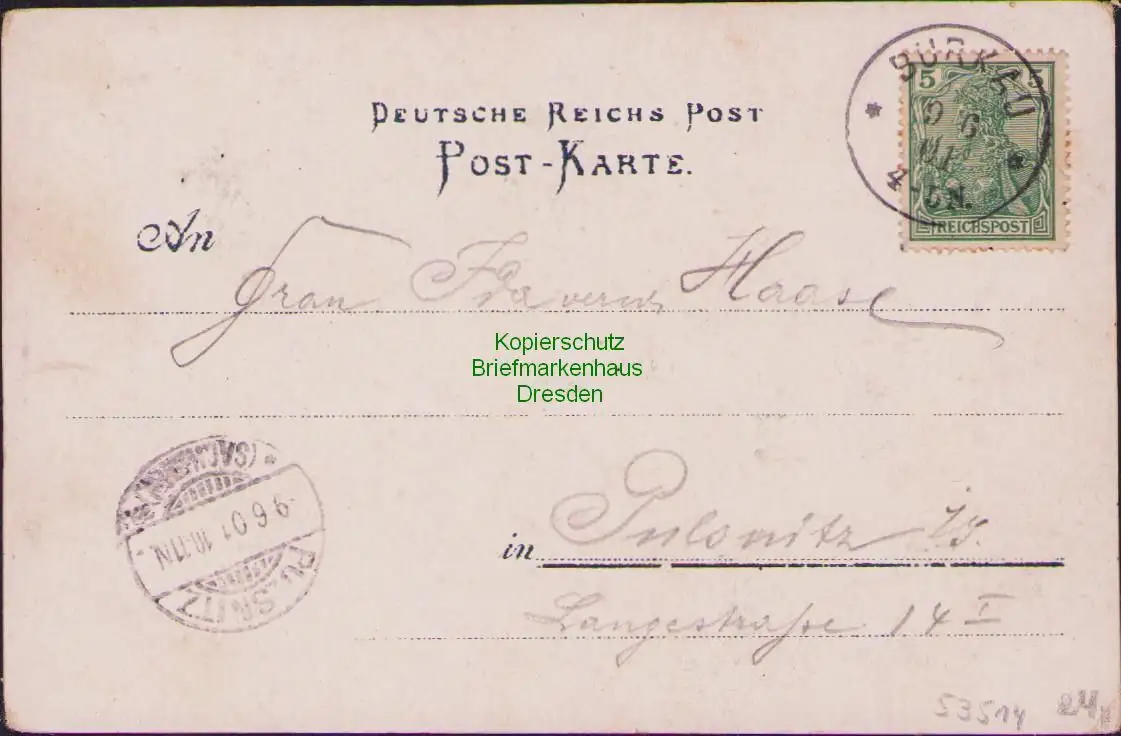 DEUTSCHE REICHS POST
POST-KARTE.
BURKAU
9 6
01
4-5N.
5 5
REICHSPOST
An
Frau Ida verw. Haase
Kopierschutz
Briefmarkenhaus
Dresden
in Pulsnitz i/S.
Langestraße 14 I
PULSNITZ
(SACHSEN)
9 6 01 10-11N
53514 24